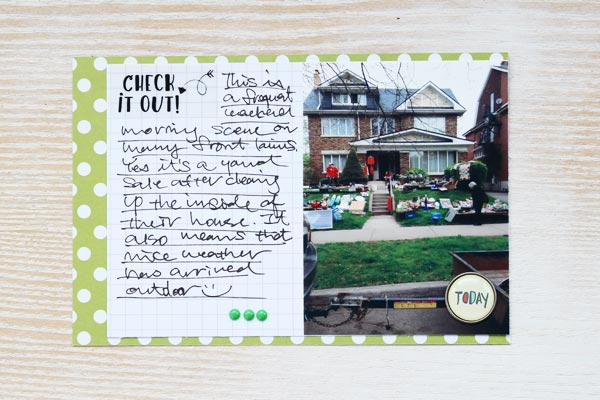 CHECK
iT OUT!
This is
a frequent
weekend
morning scene on
many front lawns.
Yes it's a yard
sale after cleaning
up the inside of
their house. It
also means that
nice weather
has arrived
outdoor
TODAY